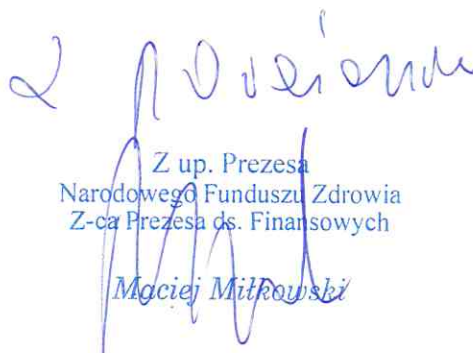 Z poważaniem
Z up. Prezesa
Narodowego Funduszu Zdrowia
Z-ca Prezesa ds. Finansowych
Maciej Miłkowski